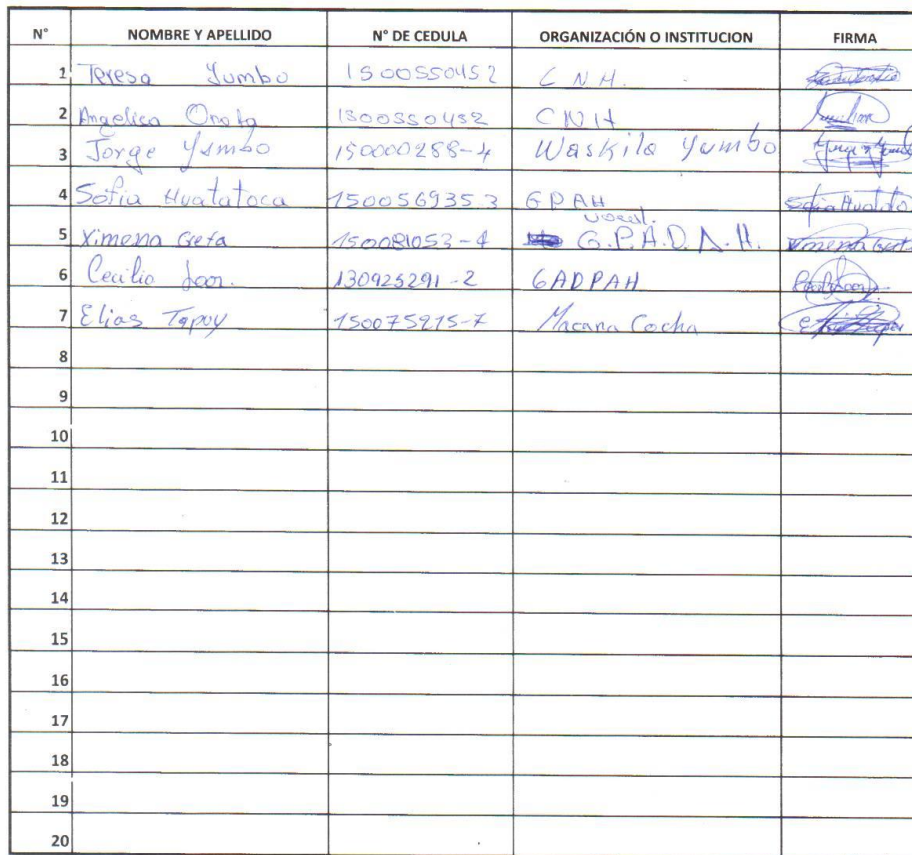 N° NOMBRE Y APELLIDO N° DE CEDULA ORGANIZACIÓN O INSTITUCION FIRMA
1 Teresa Yumbo 1500550452 C N H.
2 Angelica 1500550452 CNH
3 Jorge Yumbo 150000288-4 Waskila Yumbo
4 Sofia Huatatoca 150056935-3 GPAH Sofia Huatato
vocal.
5 Ximena Grefa 150081053-4 G.P.A.D.A.H. Ximena Grefa
6 Cecilio Loor. 130925291-2 GADPAH
7 Elias Tapuy 150075915-7 Macana Cocha
8
9
10
11
12
13
14
15
16
17
18
19
20